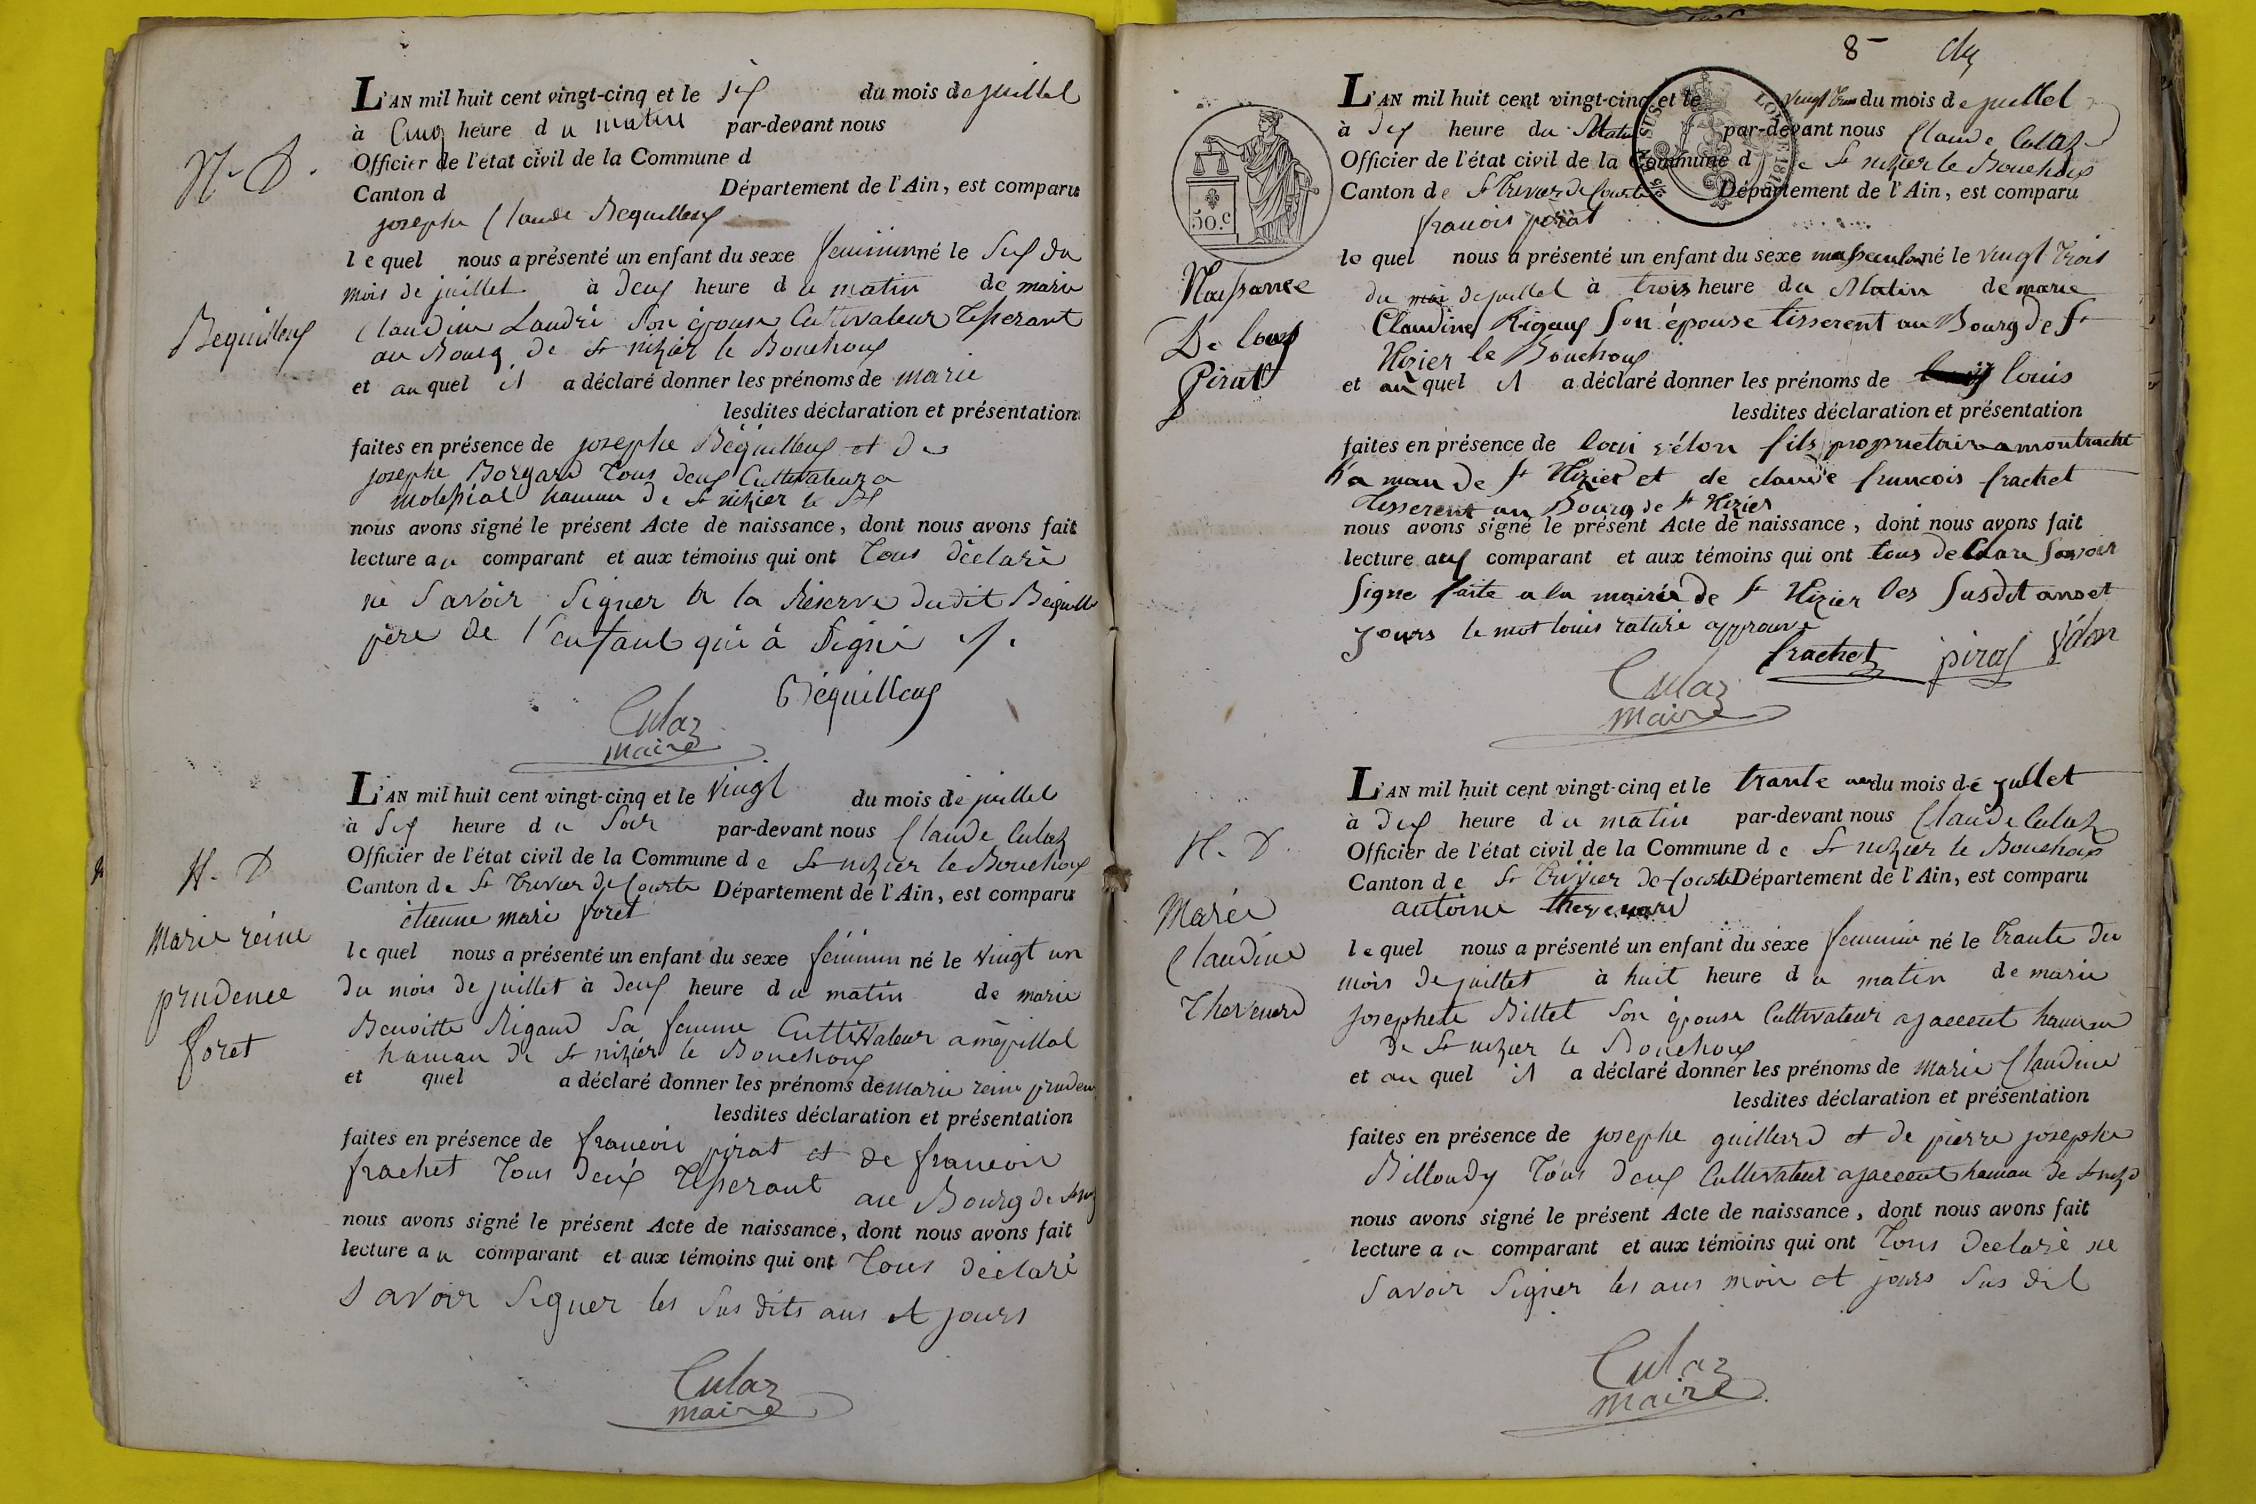 L'AN mil huit cent vingt-cinq et le six du mois de juillet
à Cinq heure du matin par-devant nous
Officier de l'état civil de la Commune d
Canton d Département de l'Ain, est comparu
josephe Claude Bequilleux
N. D.
lequel nous a présenté un enfant du sexe feminin né le Six du
mois de juillet à deux heure du matin de marie
Bequilleux
Claudine Landri Son épouse Cultivateur Tisserant
au Bourg de St nizier le Bouchoux
et auquel il a déclaré donner les prénoms de marie
lesdites déclaration et présentation
faites en présence de josephe Béquilleux et de
josephe Borgard Tous deux Cultivateur a
hamau de St nizier le
nous avons signé le présent Acte de naissance, dont nous avons fait
lecture au comparant et aux témoins qui ont Tous déclaré
ne Savoir Signer a la Réserve dudit
père de l'enfant qui à Signé
Béquilleux
Culaz
maire
L'AN mil huit cent vingt-cinq et le vingt du mois de juillet
à Six heure du Soir par-devant nous Claude Culaz
Officier de l'état civil de la Commune de St nizier le Bouchoux
Canton de St Trivier de Courte Département de l'Ain, est comparu
étienne mari foret
N. D
marie réine
prudence
foret
lequel nous a présenté un enfant du sexe féminin né le vingt un
du mois de juillet à deux heure du matin de marie
Benoitte Rigaud Sa femme Cultivateur a
hamau de St nizier le Bouchoux
et quel a déclaré donner les prénoms de marie reine pruden
lesdites déclaration et présentation
faites en présence de francoi pirat et de francoi
frachet Tous deux Tisserant au Bourg de St niz
nous avons signé le présent Acte de naissance, dont nous avons fait
lecture au comparant et aux témoins qui ont Tous déclaré
Savoir Signer les Sus dits ans et jours
Culaz
maire
8
L'AN mil huit cent vingt-cinq et le vingt trois du mois de juillet
à dix heure du Matin par-devant nous Claude Culaz
Officier de l'état civil de la Commune de St nizier le Bouchoux
Canton de St Trivier de Courte Département de l'Ain, est comparu
francois pirat
50.c
Naissance
De louis
Pirat
lequel nous a présenté un enfant du sexe masculin né le vingt trois
du moi de juillet à trois heure du Matin de marie
Claudine Rigaux Son épouse tisserent au Bourg de St
Nizier le Bouchoux
et auquel il a déclaré donner les prénoms de louis
lesdites déclaration et présentation
faites en présence de loui vélon fils proprietaire a montrachet
hamau de St Nizier et de claude francois frachet
Tisserent au Bourg de St Nizier
nous avons signé le présent Acte de naissance, dont nous avons fait
lecture aux comparant et aux témoins qui ont tous declare Savoir
Signe faite a la mairie de St Nizier les Susdit ans et
jours le mot louis raturé approuvé
frachet pirat vélon
Culaz
maire
L'AN mil huit cent vingt-cinq et le trante un du mois de jullet
à dix heure du matin par-devant nous Claude Culaz
Officier de l'état civil de la Commune de St nizier le Bouchoux
Canton de St Trivier de Courte Département de l'Ain, est comparu
antoine thevenard
N. D.
Marie
Claudine
Thevenard
lequel nous a présenté un enfant du sexe feminin né le trante du
mois de juillet à huit heure du matin de marie
Josephete Billet Son épouse Cultivateur ajaccent hamau
de St nizier le Bouchoux
et au quel il a déclaré donner les prénoms de marie Claudine
lesdites déclaration et présentation
faites en présence de josephe guillerd et de pierre josephe
Billoudy Tous deux Cultivateur ajaccent hamau de St nizi
nous avons signé le présent Acte de naissance, dont nous avons fait
lecture au comparant et aux témoins qui ont Tous déclaré ne
Savoir Signer les ans moi et jours Sus dit
Culaz
maire